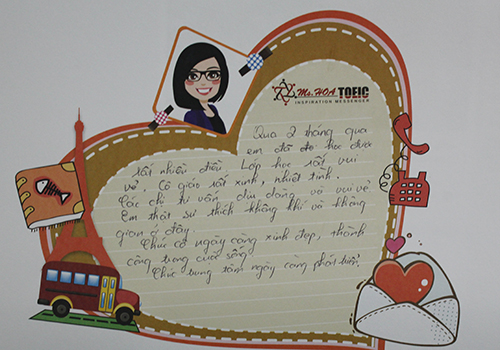 Ms. HOA TOEIC
INSPIRATION MESSENGER
Qua 2 tháng qua
em đã học được
rất nhiều điều. Lớp học rất vui
vẻ. Cô giáo rất xinh, nhiệt tình.
Các chị tư vấn dịu dàng và vui vẻ
Em thật sự thích không khí và không
gian ở đây.
Chúc cô ngày càng xinh đẹp, thành
công trong cuộc sống.
Chúc trung tâm ngày càng phát triển.